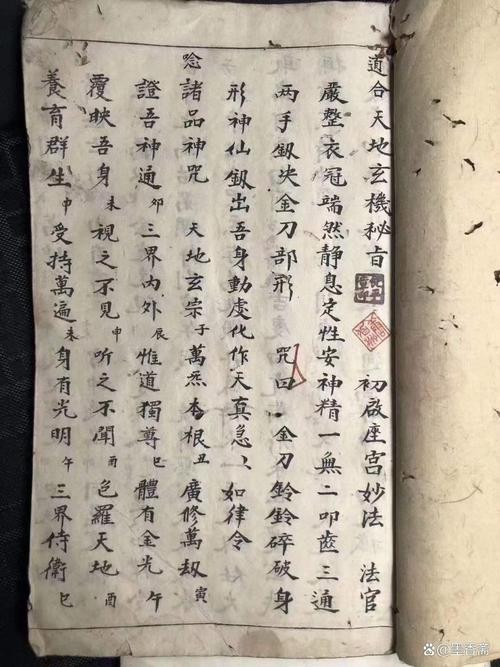 道合天地玄機秘旨 初啟座宮妙法 法官
嚴整衣冠端然静息定性安神精一無二叩齒三通
两手釼决金刀部形 咒曰 金刀鈴鈴碎破身
形神仙釼出吾身動處化作天真急〻如律令
唸諸品神咒 天地玄宗子萬炁本根丑廣修萬劫寅
證吾神通卯三界內外辰惟道獨尊巳體有金光午
覆映吾身未視之不見申听之不聞酉包羅天地酉
養育群生申受持萬遍未身有光明午三界侍衛巳